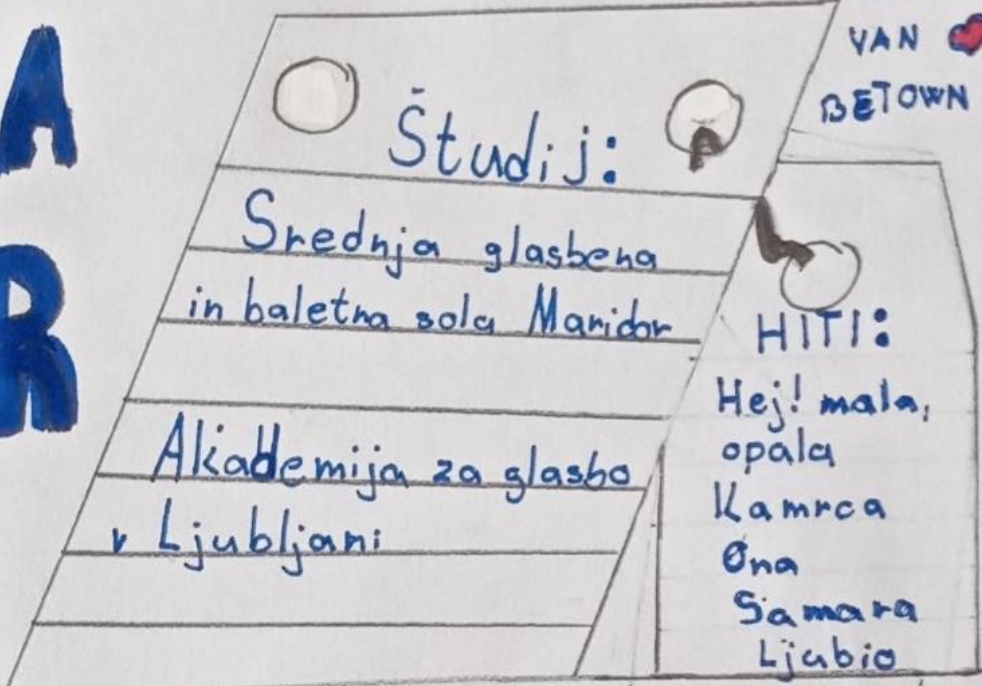 A
R
Študij:
Srednja glasbena
in baletna sola Maridor
Akademija za glasbo
v Ljubljani
VAN
BETOWN
HITI:
Hej! mala,
opala
Kamrca
Ona
Samara
Ljubio